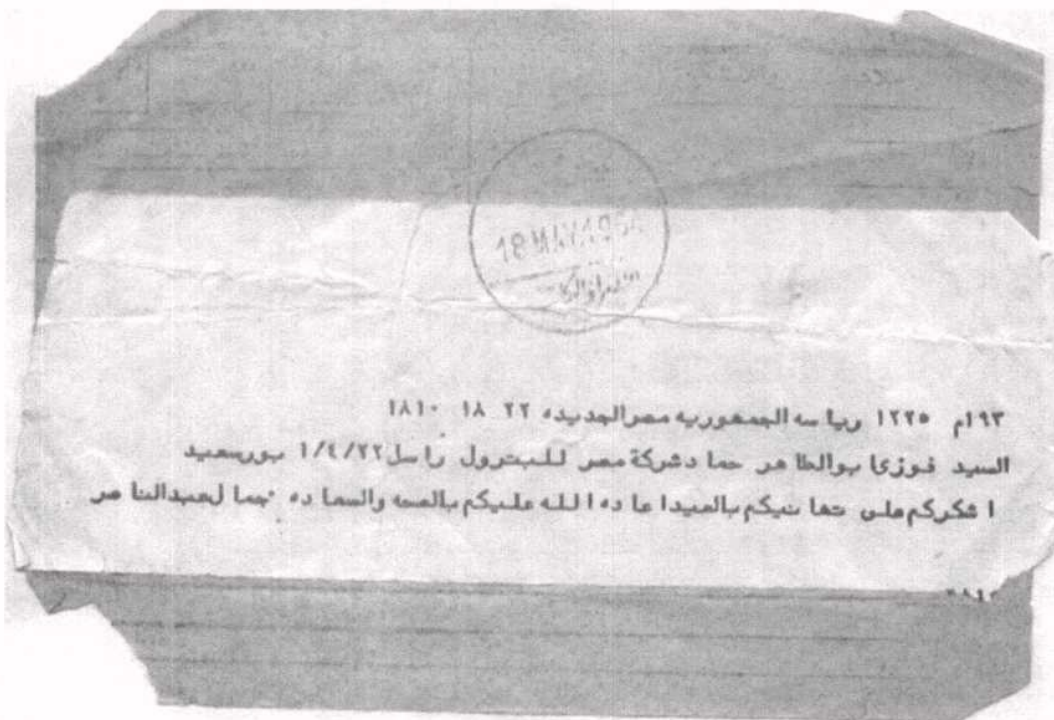 18 MAY 196
١٩٣م ١٢٢٥ رياسه الجمهوريه مصرالجديده ٢٢ ١٨ ١٨١٠
السيد فوزى ابوالطاهر حماد شركة مصر للبترول راسل ١/٤/٢٢ بورسعيد
اشكركم على تهانيكم بالعيد اعاده الله عليكم بالصحه والسعاده جمال عبدالناصر